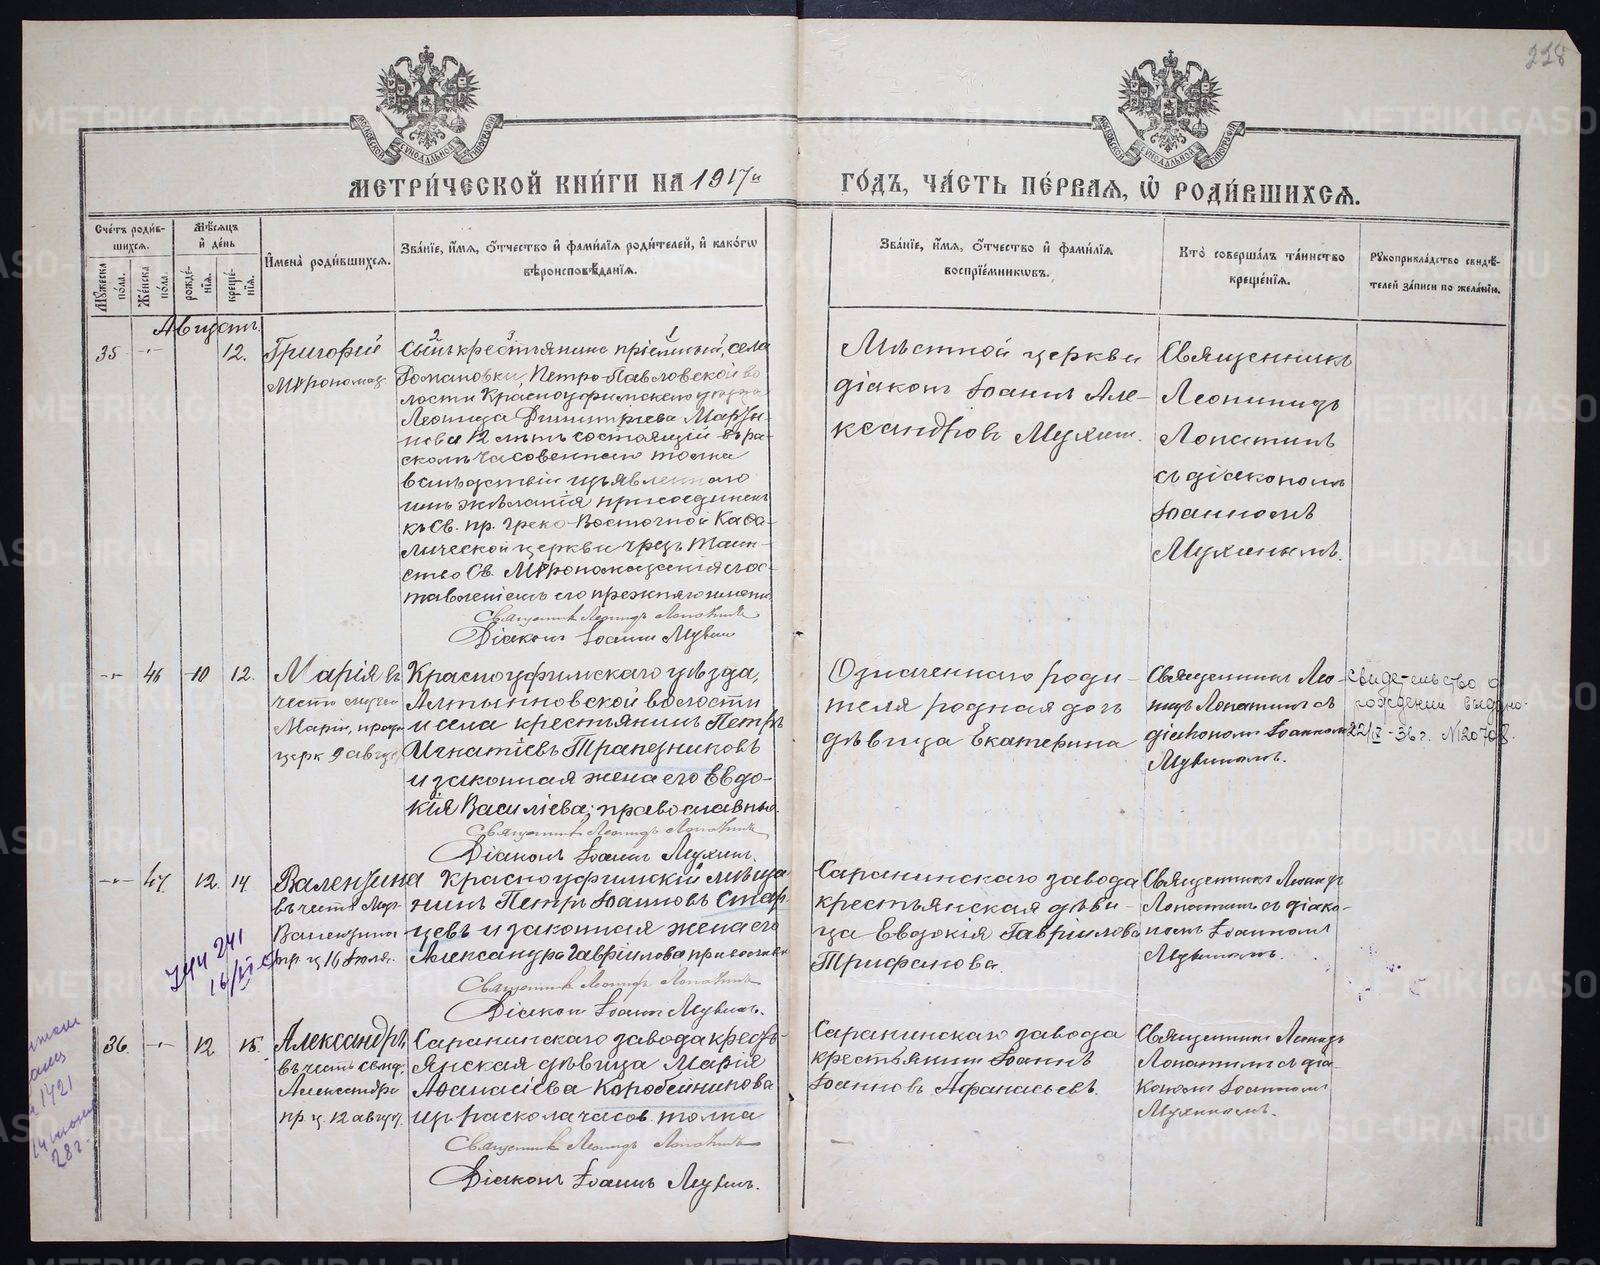 228
МОСКОВСКОЙ СѴНОДАЛЬНОЙ ТИПОГРАФІИ
МОСКОВСКОЙ СѴНОДАЛЬНОЙ ТИПОГРАФІИ
МЕТРИ́ЧЕСКОЙ КНИ́ГИ НА 1917й
ГО́ДЪ, ЧА́СТЬ ПЕ́РВАЯ, Ѿ РОДИ́ВШИХСЯ.
Сче́тъ роди́в-
шихся.
Мꙋ́жеска по́ла.
Же́нска по́ла.
Мѣ́сяцъ
и҆ де́нь
рожде́-
нїя.
креще́-
нїя.
И҆мена̀ роди́вшихся.
Зва́нїе, и҆́мя, ѻ҆́тчество и҆ фами́лїя роди́телей, и҆ како́гѡ
вѣроисповѣ́данїя.
Зва́нїе, и҆́мя, ѻ҆́тчество и҆ фами́лїя
воспрїе́мникѡвъ.
Кто̀ соверша́лъ та́инство
креще́нїя.
Рꙋкоприкла́дство свидѣ́-
телей за́писи по жела́нїю.
Августъ.
35 -"- 12.
Григорій
Мѵропомаз.
2 3 1
Сынъ крестьянина пріемный, села
Романовки, Петро-Павловской во
лости Красноуфимскаго уѣзда
Леонида Димитріева Марты-
нова 12 лѣтъ состоящій въ ра-
сколѣ часовеннаго толка
вслѣдствіи изъявленнаго
имъ желанія присоединенъ
къ Св. пр. Греко-Восточной Каѳо-
лической церкви чрезъ таин-
ство Св. Мѵропомазанія съ ос-
тавленіемъ его прежняго имени.
Священникъ Леонидъ Лопатинъ
Діаконъ Іоаннъ Мухинъ
Мѣстной церкви
діаконъ Іоаннъ Але-
ксандровъ Мухинъ.
Священникъ
Леонидъ
Лопатинъ
съ діакономъ
Іоанномъ
Мухинымъ.
-"- 46 10 12.
Марія въ
честь
Маріи, празд
церк 9 август
Красноуфимскаго уѣзда,
Алтыновской волости
и села крестьянинъ Петръ
Игнатіевъ Трапезниковъ
и законная жена его Евдо-
кія Василіева; православны.
Священникъ Леонидъ Лопатинъ
Діаконъ Іоаннъ Мухинъ.
Означеннаго роди-
теля родная дочь
дѣвица Екатерина
Священникъ Лео-
нидъ Лопатинъ съ
діакономъ Іоанномъ
Мухинымъ.
Свидетельство о
рождении выдано.
22/IV-36 г. №20708.
-"- 47. 12. 14.
Валентина
въ честь Муч-
Валентина
пр. ц. 16 Іюля.
Красноуфимскій мѣща
нинъ Петръ Іоанновъ Стар-
цевъ и законная жена его
Александра Гавріилова, православн
Священникъ Леонидъ Лопатинъ
Діаконъ Іоаннъ Мухинъ.
Саранинскаго завода
крестьянская дѣви-
ца Евдокія Гавріилова
Трифанова.
Священникъ Леонидъ
Лопатинъ съ діако-
номъ Іоанномъ
Мухинымъ.
36. -"- 12 15.
Александръ
въ честь свмуч.
Александра
пр. ц. 12 август.
Саранинскаго завода кресть-
янская дѣвица Марія
Аѳанасіева Коробейникова
изъ раскола часов. толка
Священникъ Леонидъ Лопатинъ
Діаконъ Іоаннъ Мухинъ.
Саранинскаго завода
крестьянинъ Іоаннъ
Іоанновъ Афанасьевъ.
Священникъ Леонидъ
Лопатинъ съ діа-
кономъ Іоанномъ
Мухинымъ.
1421
28 г.